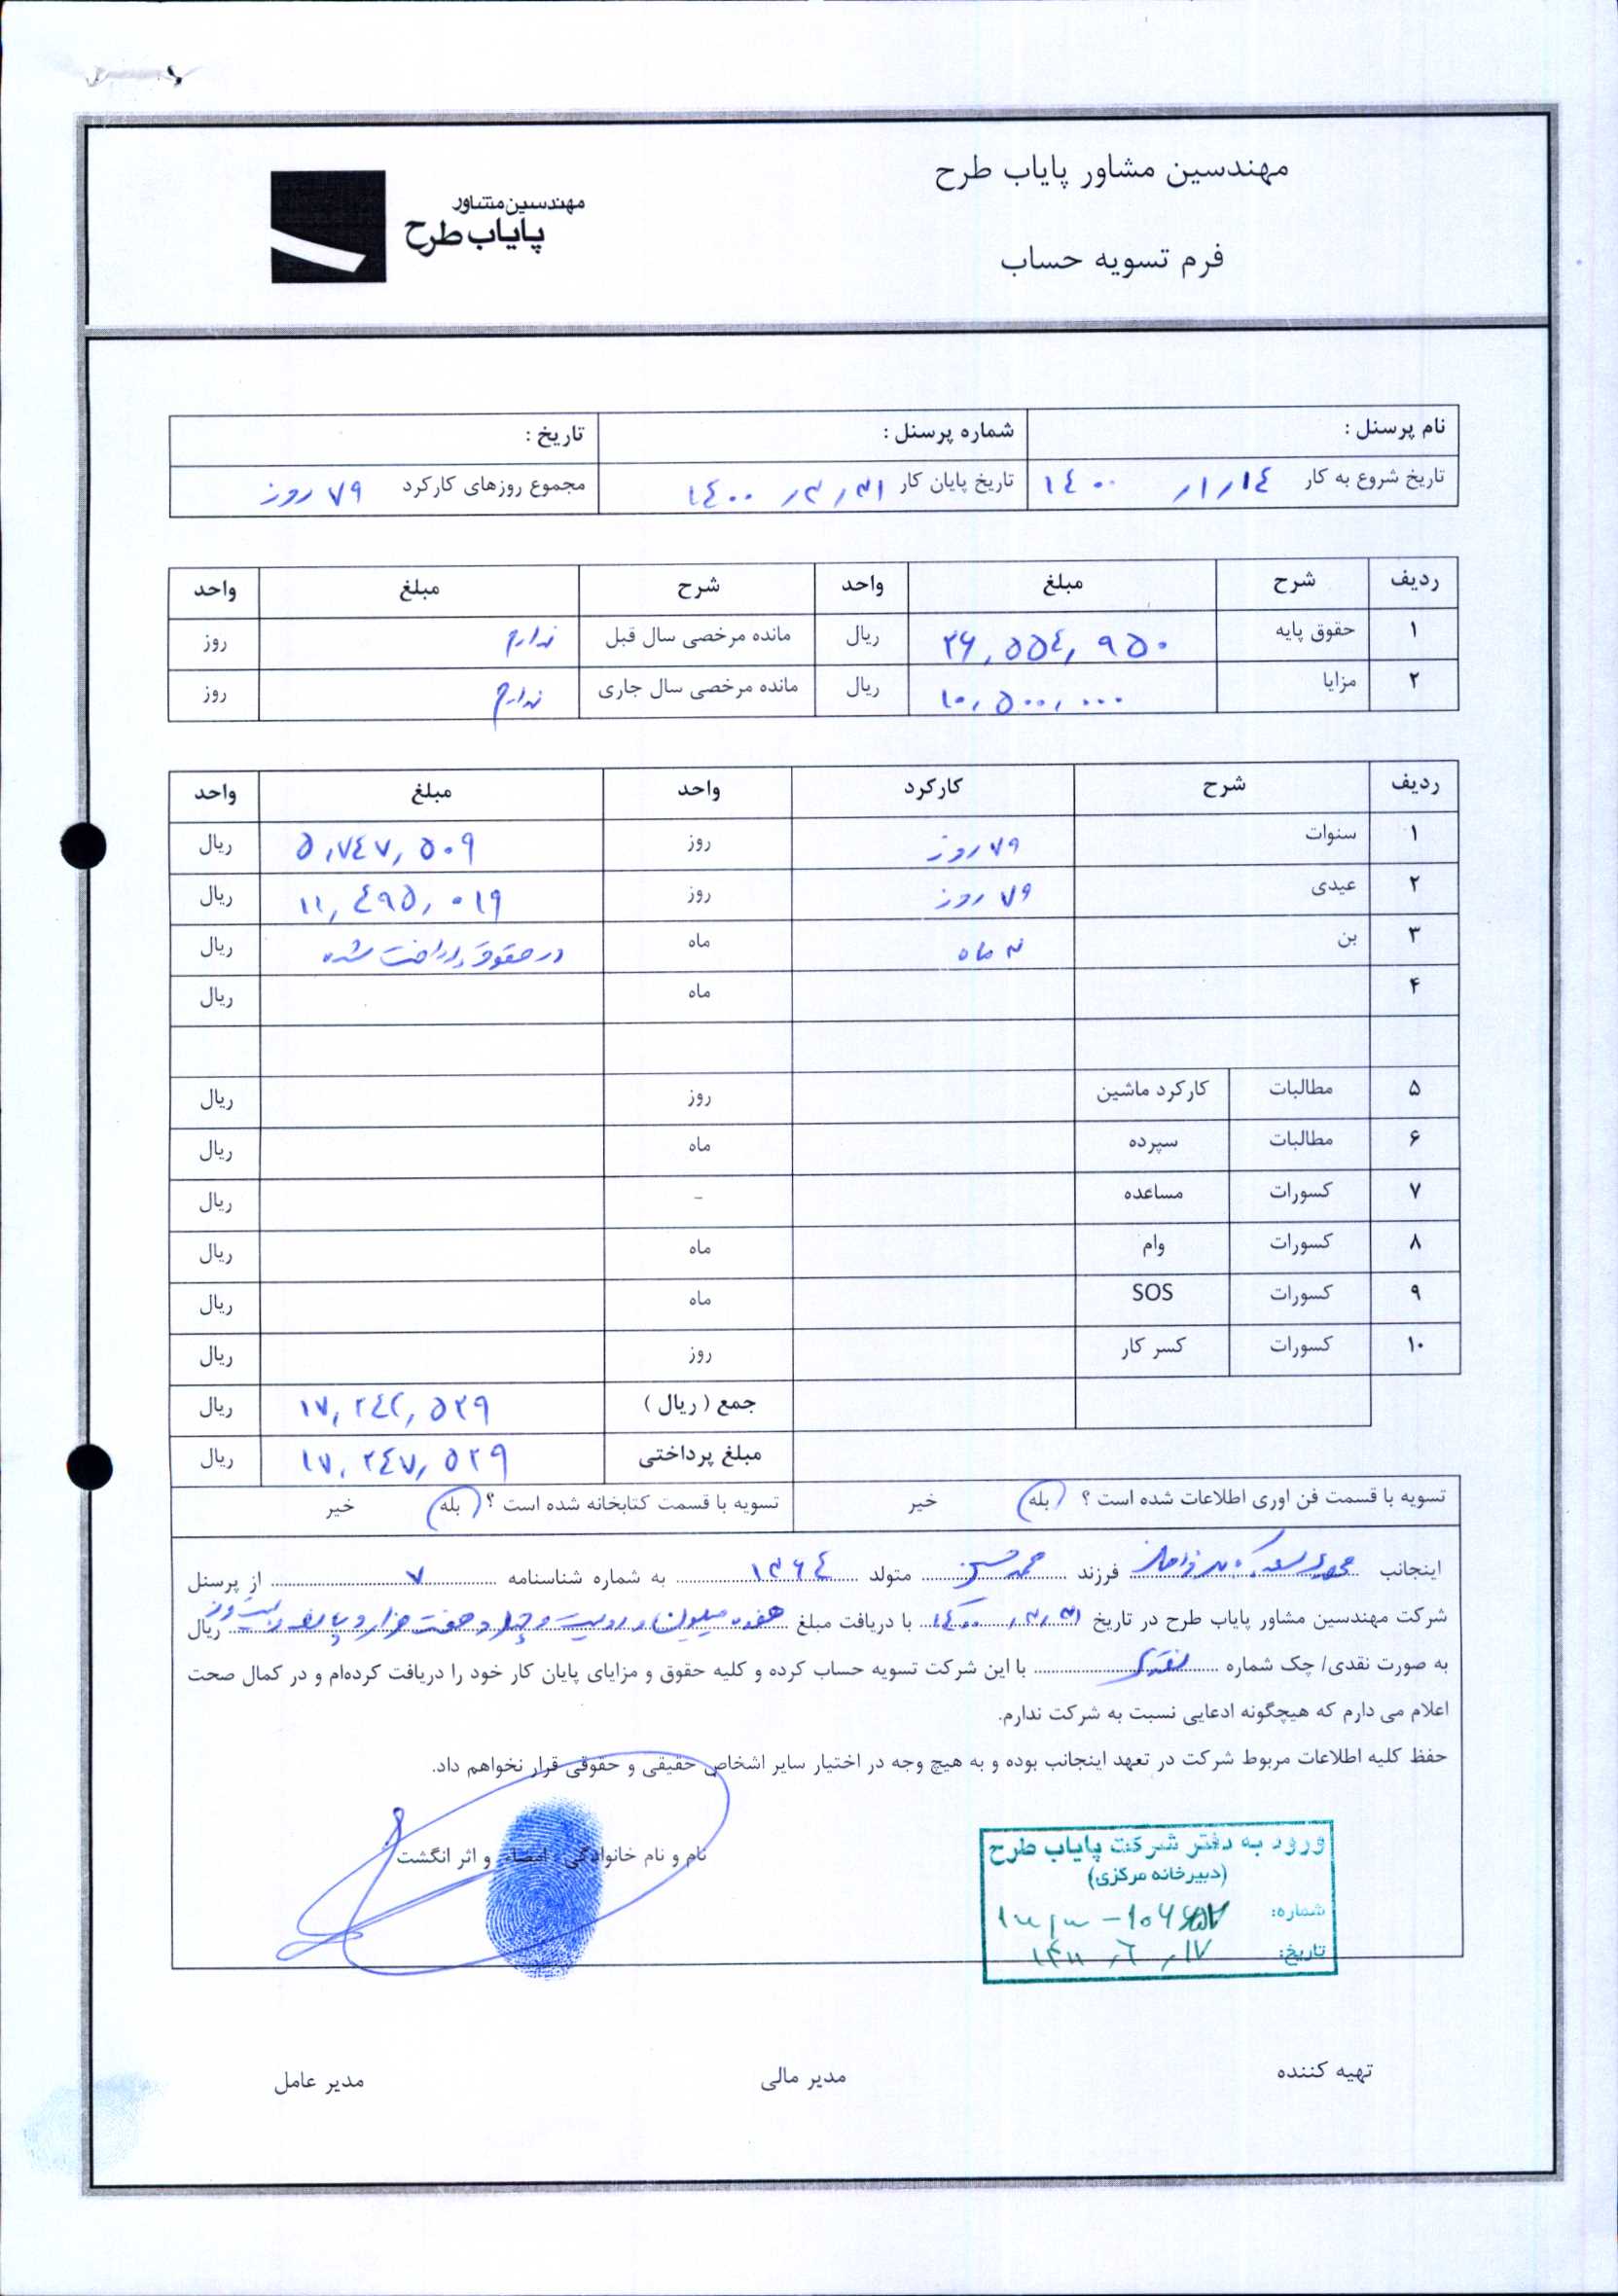 مهندسین مشاور پایاب طرح
مهندسین مشاور
پایاب طرح
فرم تسویه حساب
نام پرسنل : شماره پرسنل : تاریخ :
تاریخ شروع به کار ۱۴۰۰/۱/۱۴ تاریخ پایان کار ۱۴۰۰/۳/۳۱ مجموع روزهای کارکرد ۷۹ روز
ردیف شرح مبلغ واحد شرح مبلغ واحد
۱ حقوق پایه ۲۶,۵۵۴,۹۵۰ ریال مانده مرخصی سال قبل ندارم روز
۲ مزایا ۱۰,۵۰۰,۰۰۰ ریال مانده مرخصی سال جاری ندارم روز
ردیف شرح کارکرد واحد مبلغ واحد
۱ سنوات ۷۹ روز روز ۵,۷۴۷,۵۰۹ ریال
۲ عیدی ۷۹ روز روز ۱۱,۴۹۵,۰۱۹ ریال
۳ بن ۳ ماه ماه در حقوق پرداخت شده ریال
۴ ماه ریال
۵ مطالبات کارکرد ماشین روز ریال
۶ مطالبات سپرده ماه ریال
۷ کسورات مساعده - ریال
۸ کسورات وام ماه ریال
۹ کسورات SOS ماه ریال
۱۰ کسورات کسر کار روز ریال
جمع ( ریال ) ۱۷,۲۴۲,۵۲۹ ریال
مبلغ پرداختی ۱۷,۲۴۷,۵۲۹ ریال
تسویه با قسمت فن اوری اطلاعات شده است ؟ بله خیر تسویه با قسمت کتابخانه شده است ؟ بله خیر
اینجانب فرزند محمدحسین متولد ۱۳۶۴ به شماره شناسنامه ۷ از پرسنل
شرکت مهندسین مشاور پایاب طرح در تاریخ ۱۴۰۰/۳/۳۱ با دریافت مبلغ هفده میلیون و دویست و چهل و هفت هزار و پانصد و بیست و نه ریال
به صورت نقدی/ چک شماره نقدی با این شرکت تسویه حساب کرده و کلیه حقوق و مزایای پایان کار خود را دریافت کرده‌ام و در کمال صحت
اعلام می دارم که هیچگونه ادعایی نسبت به شرکت ندارم.
حفظ کلیه اطلاعات مربوط شرکت در تعهد اینجانب بوده و به هیچ وجه در اختیار سایر اشخاص حقیقی و حقوقی قرار نخواهم داد.
نام و نام خانوادگی ، امضاء و اثر انگشت
ورود به دفتر شرکت پایاب طرح
(دبیرخانه مرکزی)
شماره:
تاریخ:
تهیه کننده مدیر مالی مدیر عامل